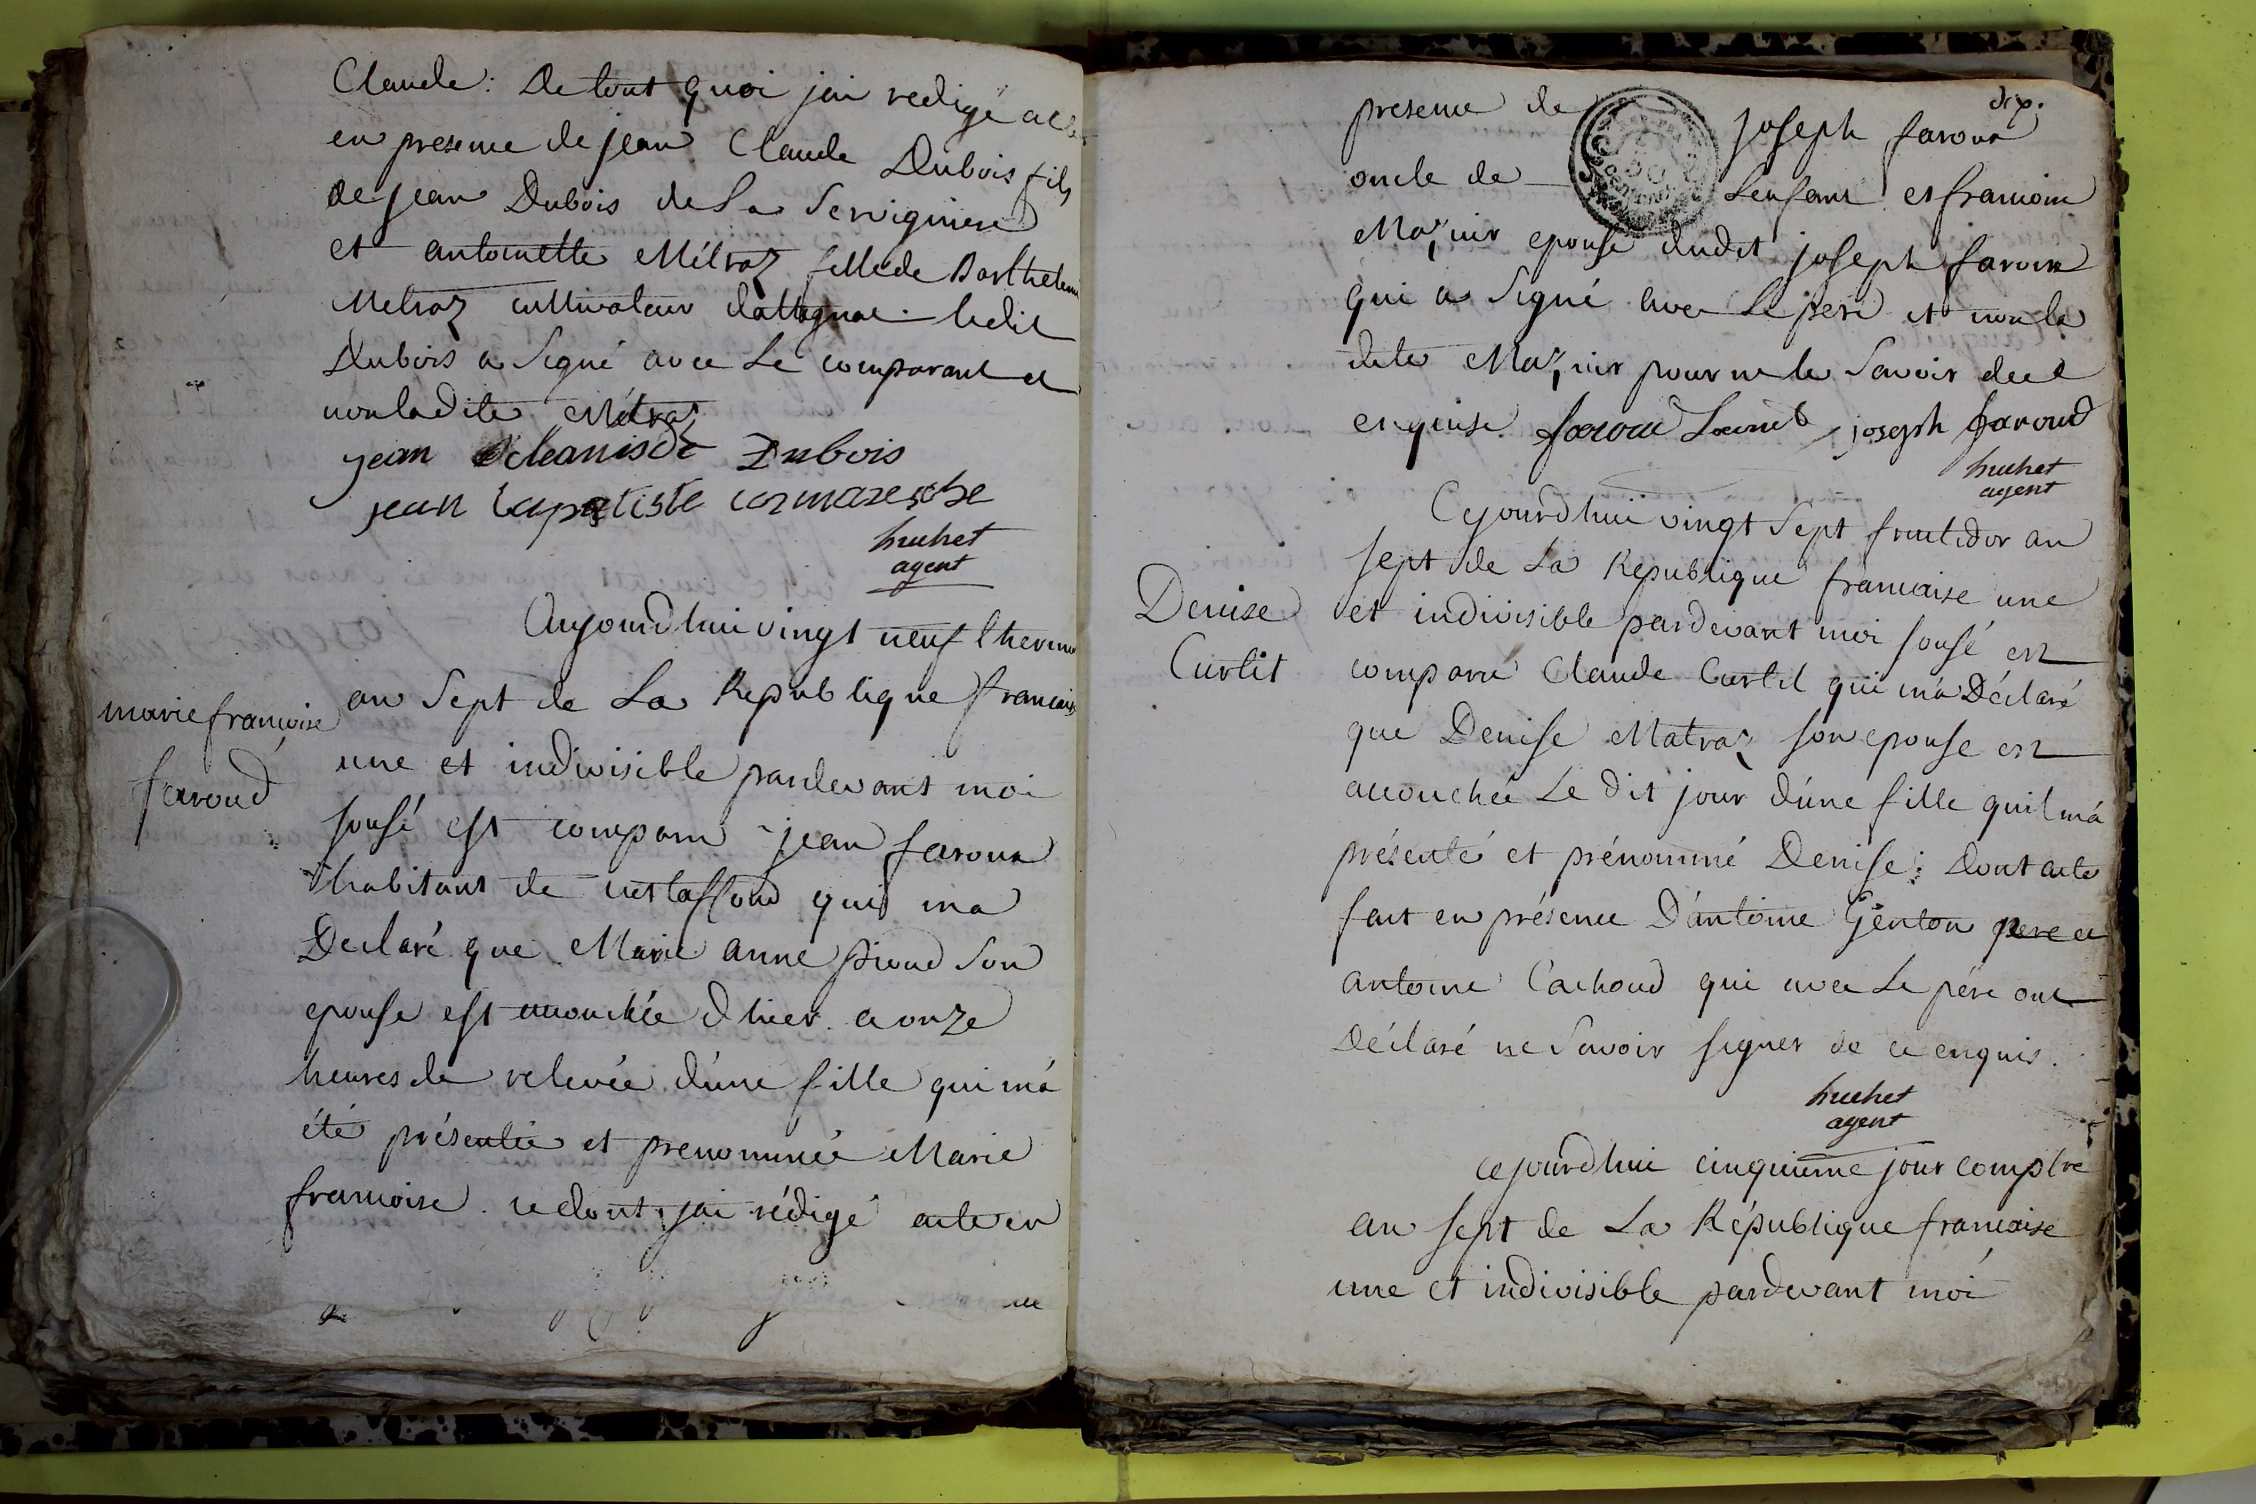 Claude: De tout quoi jai redigé acte
en presence de jean Claude Dubois fils
de jean Dubois de La Serviginiere
et antoinette Métraz fille de Barthelemi
Metraz cultivateur dattignat ledit
Dubois a Signé avec Le comparant et
non ladite Métraz
jean Dubois
jean bapatiste cormareche
huchet
agent
Aujourdhui vingt neuf thermi
an Sept de La Republique francaise
marie françoise
faroud
une et indivisible pardevant moi
sousé est comparu jean faroux
habitant de curtaffond qui ma
Declaré que Marie anne pioud Son
epouse est accouchée dhier a onze
heures de relevée d'une fille qui m'a
été présentée et prenommée Marie
francoise. ce dont jai rédigé acte en
dix.
presence de joseph faroux
oncle de Lenfant et francoise
epouse dudit joseph faroux
qui a Signé avec Le pere et non la
dite pour ne le Savoir de ce
enquise. joseph faroud
huchet
agent
Cejourdhui vingt Sept fructidor an
sept de La Republique francaise une
Denise
Curtit
et indivisible pardevant moi sousé est
comparu Claude Curtil qui m'a Déclaré
que Denise Matraz son epouse est
accouchée Le dit jour d'une fille quil m'a
présenté et prénommé Denise: Dont acte
fait en présence D'antoine Génton pere et
antoine Cachoud qui avec Le père ont
Déclaré ne Savoir signer de ce enquis.
huchet
agent
cejourdhui cinquieme jour complre
an sept de La République francaise
une et indivisible pardevant moi